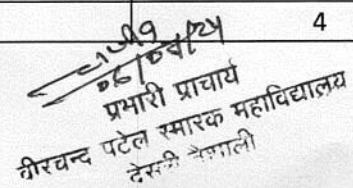 4
प्रभारी प्राचार्य
वीरचन्द पटेल स्मारक महाविद्यालय
देसरी वैशाली